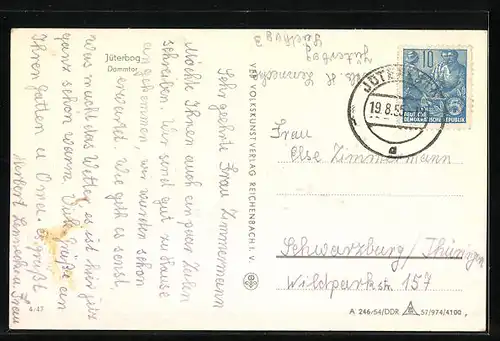 Jüterbog
Dammtor
Sehr geehrte Frau Zimmermann
Möchte Ihnen auch ein paar Zeilen
schreiben. Wir sind gut zu Hause
angekommen, wir wurden schon
erwartet. Wie geht es sonst,
was macht das Wetter, es ist hier jetzt
ganz schön warm. Viele Grüße an
Ihren Gatten u Oma. Es grüßt
Herbert u Frau
4/47
VEB VOLKSKUNSTVERLAG REICHENBACH I. V.
Jüterbog
10
DEUTSCHE
DEMOKRATISCHE REPUBLIK
JÜTERBOG
19.8.55
a
Frau
Else Zimmermann
Schwarzburg/Thüringen
Wildparkstr. 157
A 246/54/DDR 57/974/4100